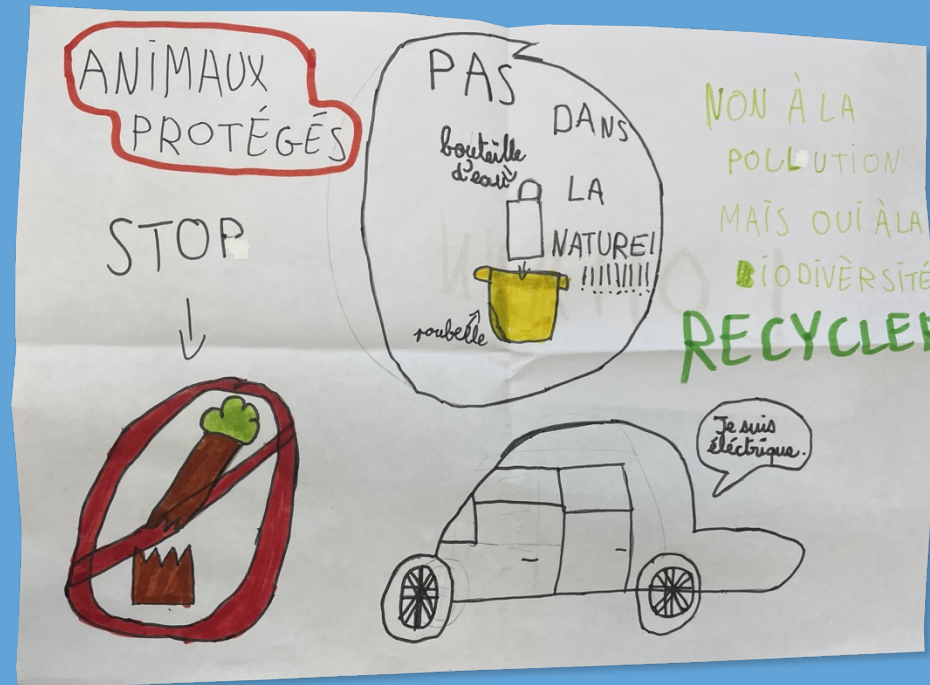 ANIMAUX
PROTÉGÉS
STOP
PAS
DANS
LA
NATURE!
!!!!!!!!!
bouteille
d'eau
poubelle
NON À LA
POLLUTION
MAIS OUI À LA
BIODIVÈRSITÉ
RECYCLER
Je suis
éléctrique.